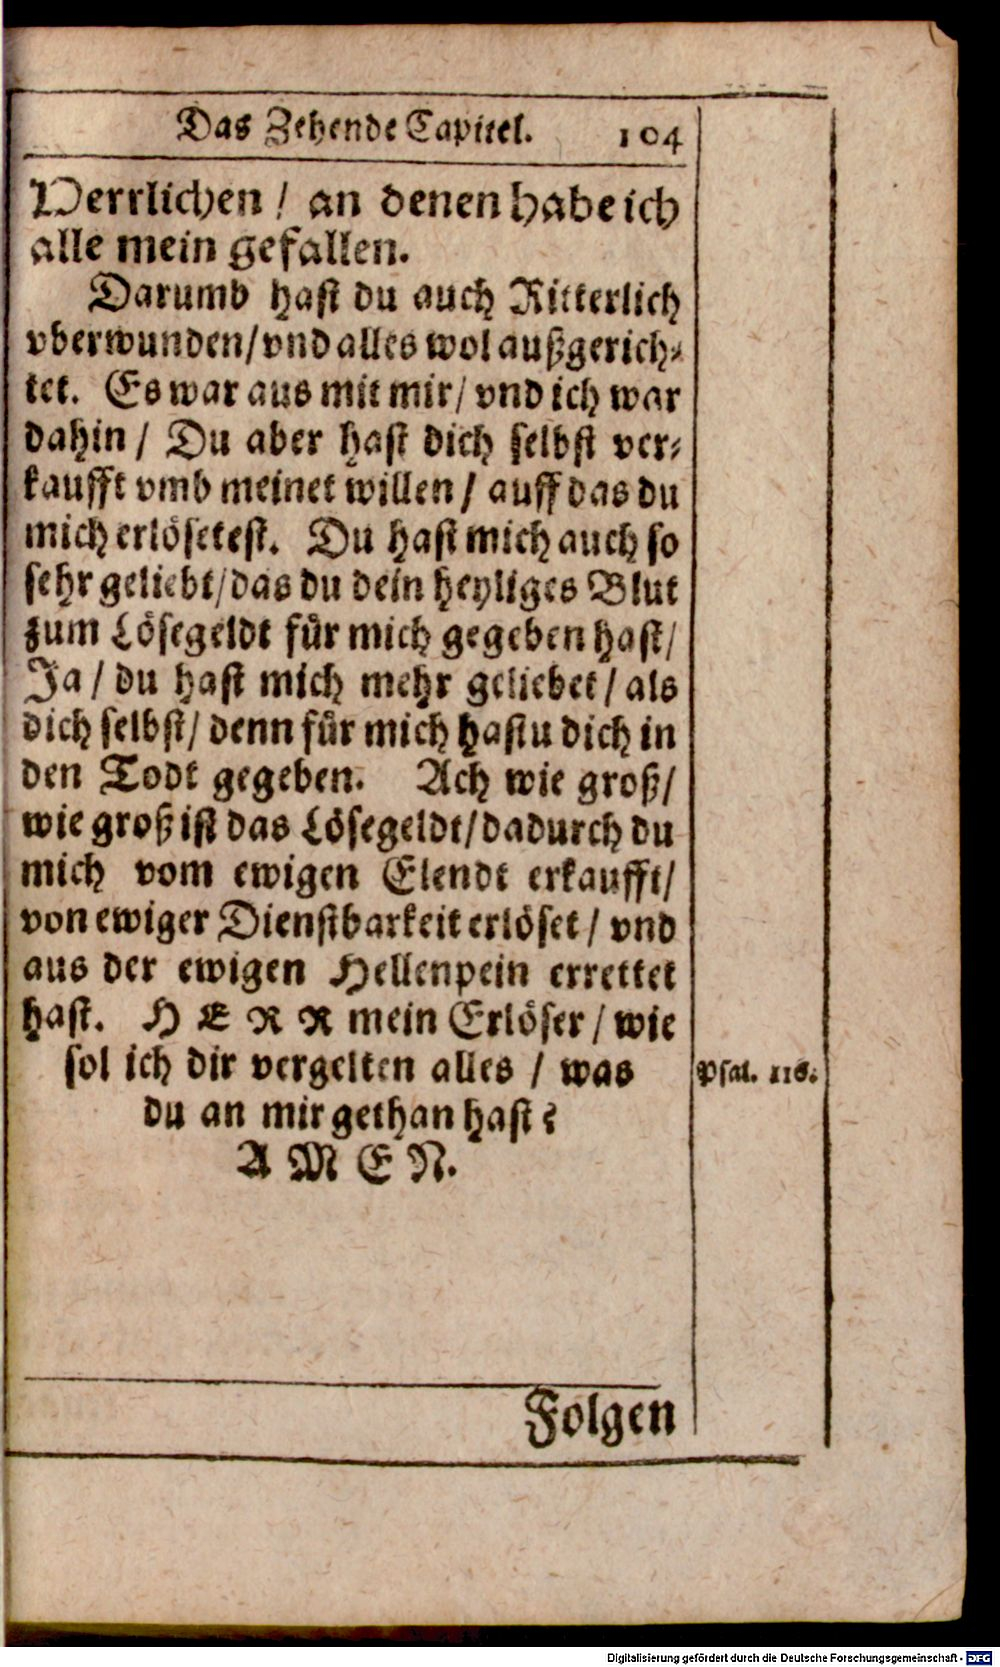 Das Zehende Capitel. 104
Herrlichen / an denen habe ich
alle mein gefallen.
Darumb hast du auch Ritterlich
vberwunden/vnd alles wol außgerich-
tet. Es war aus mit mir/ vnd ich war
dahin / Du aber hast dich selbst ver-
kaufft vmb meinet willen / auff das du
mich erlösetest. Du hast mich auch so
sehr geliebt/das du dein heyliges Blut
zum Lösegeldt für mich gegeben hast/
Ja / du hast mich mehr geliebet / als
dich selbst/ denn für mich hastu dich in
den Todt gegeben. Ach wie groß/
wie groß ist das Lösegeldt/dadurch du
mich vom ewigen Elendt erkaufft/
von ewiger Dienstbarkeit erlöset / vnd
aus der ewigen Hellenpein errettet
hast. HERR mein Erlöser / wie
sol ich dir vergelten alles / was
du an mir gethan hast?
AMEN.
Psal. 116.
Folgen
Digitalisierung gefördert durch die Deutsche Forschungsgemeinschaft - DFG